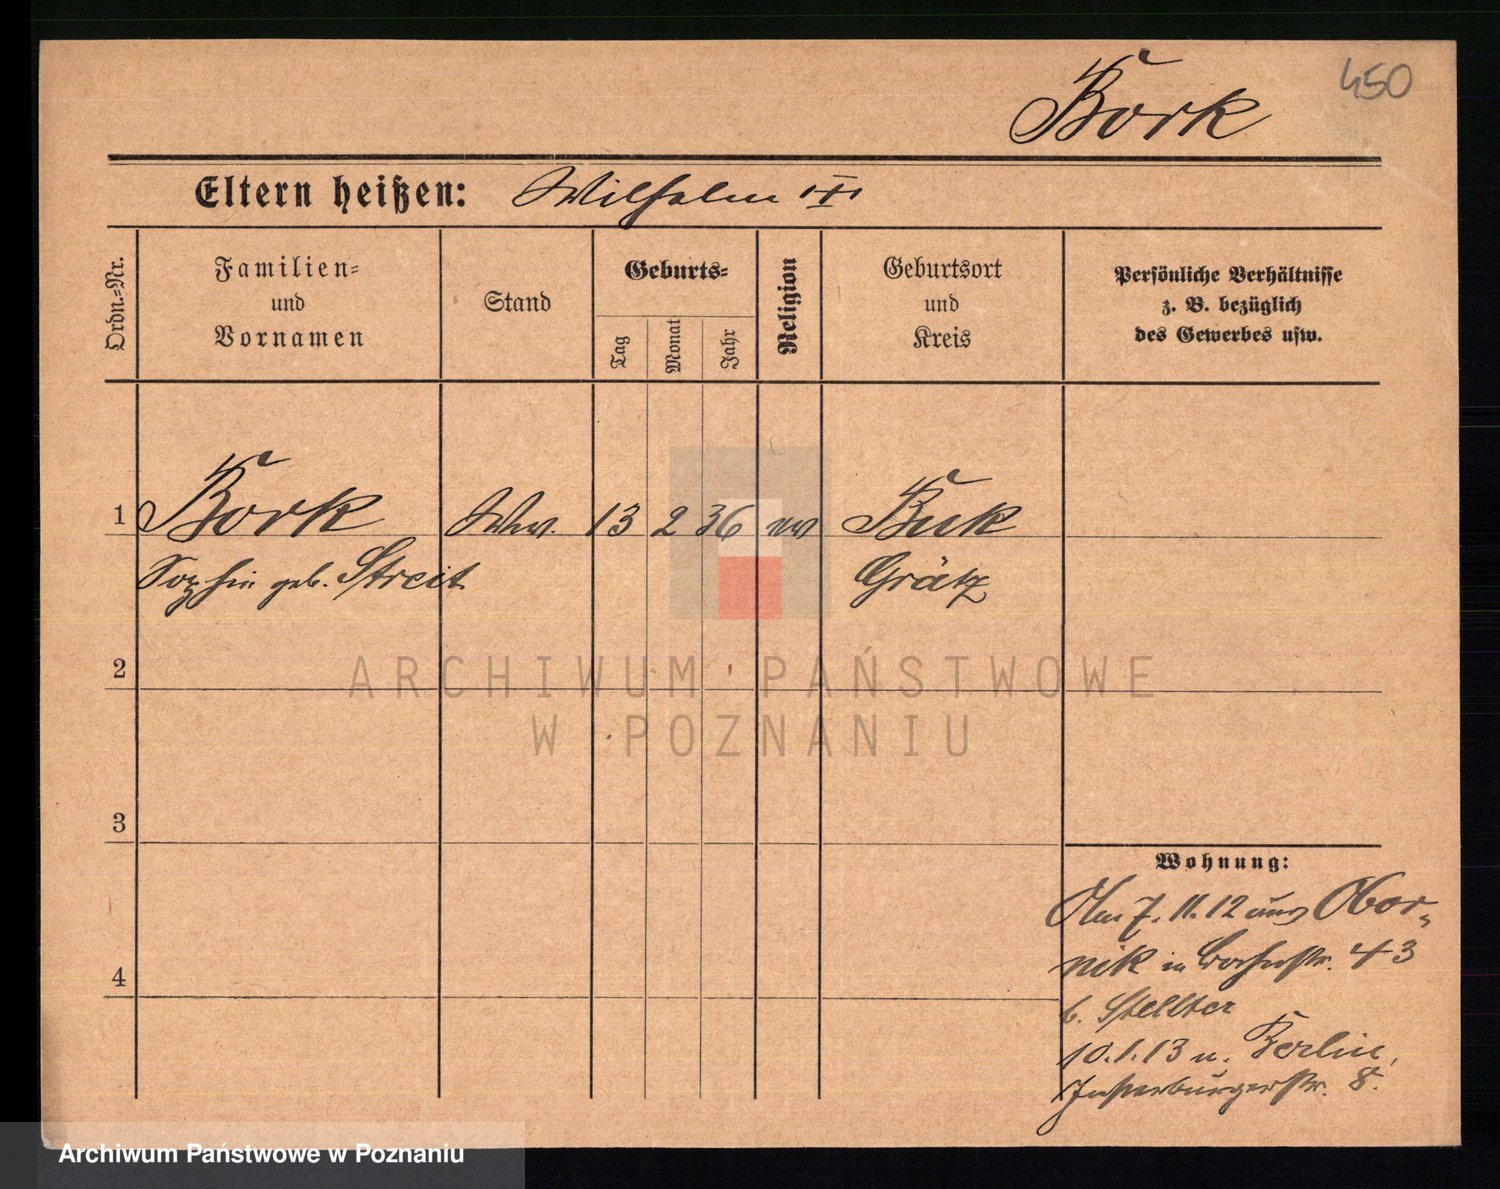 450
Bork
Eltern heißen: Wilhelm III
Ordn.=Nr.
Familien=
und
Vornamen
Stand
Geburts=
Tag
Monat
Jahr
Religion
Geburtsort
und
Kreis
Persönliche Verhältnisse
z. B. bezüglich
des Gewerbes usw.
1 Bork Ww. 13 2 36 ev Buk
Sophie geb. Streit Grätz
2
3
4
Wohnung:
Am 7. 11. 12 aus Obor=
nik in 43
b. Stellter
10. 1. 13 n. Berlin,
Insterburgerstr. 8.
ARCHIWUM PAŃSTWOWE
W POZNANIU
Archiwum Państwowe w Poznaniu